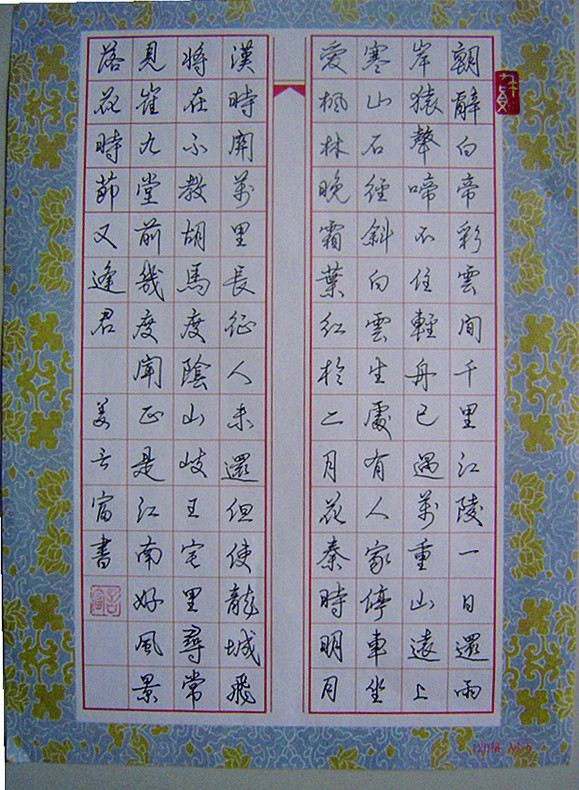 朝辭白帝彩雲間千里江陵一日還兩
岸猿聲啼不住輕舟已過萬重山遠上
寒山石徑斜白雲生處有人家停車坐
愛楓林晚霜葉紅於二月花秦時明月
漢時關萬里長征人未還但使龍城飛
將在不教胡馬度陰山岐王宅里尋常
見崔九堂前幾度聞正是江南好風景
落花時節又逢君 姜富書